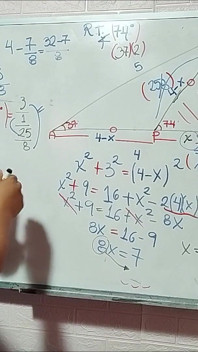 4 - 7/8 = 32-7/8
R T (74°)
(37)(2)
5
3
1
25
8
37
4-x
74
x
4
x² + 3² = (4-x)²
x² + 9 = 16 + x² - 2(4)(x)
x² + 9 = 16 + x² - 8x
8x = 16 - 9
8x = 7
x =